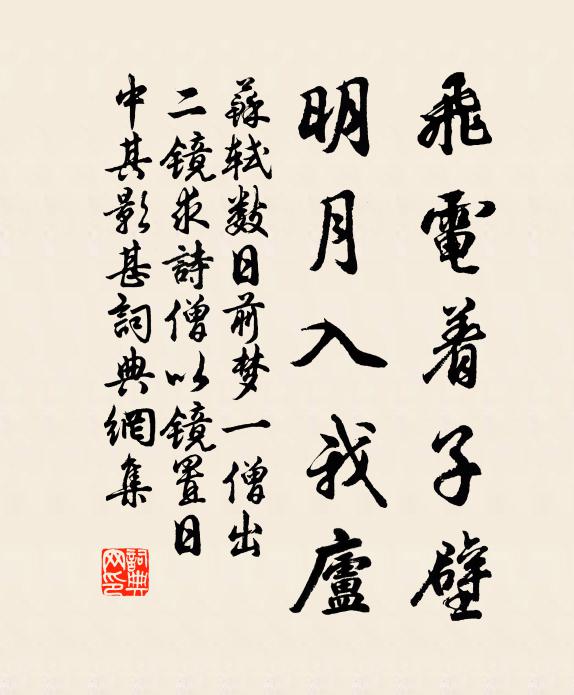 飛電着子壁
明月入我廬
蘇軾数日前梦一僧出
二鏡求詩僧以鏡置日
中其影甚詞典網集
詞典網印